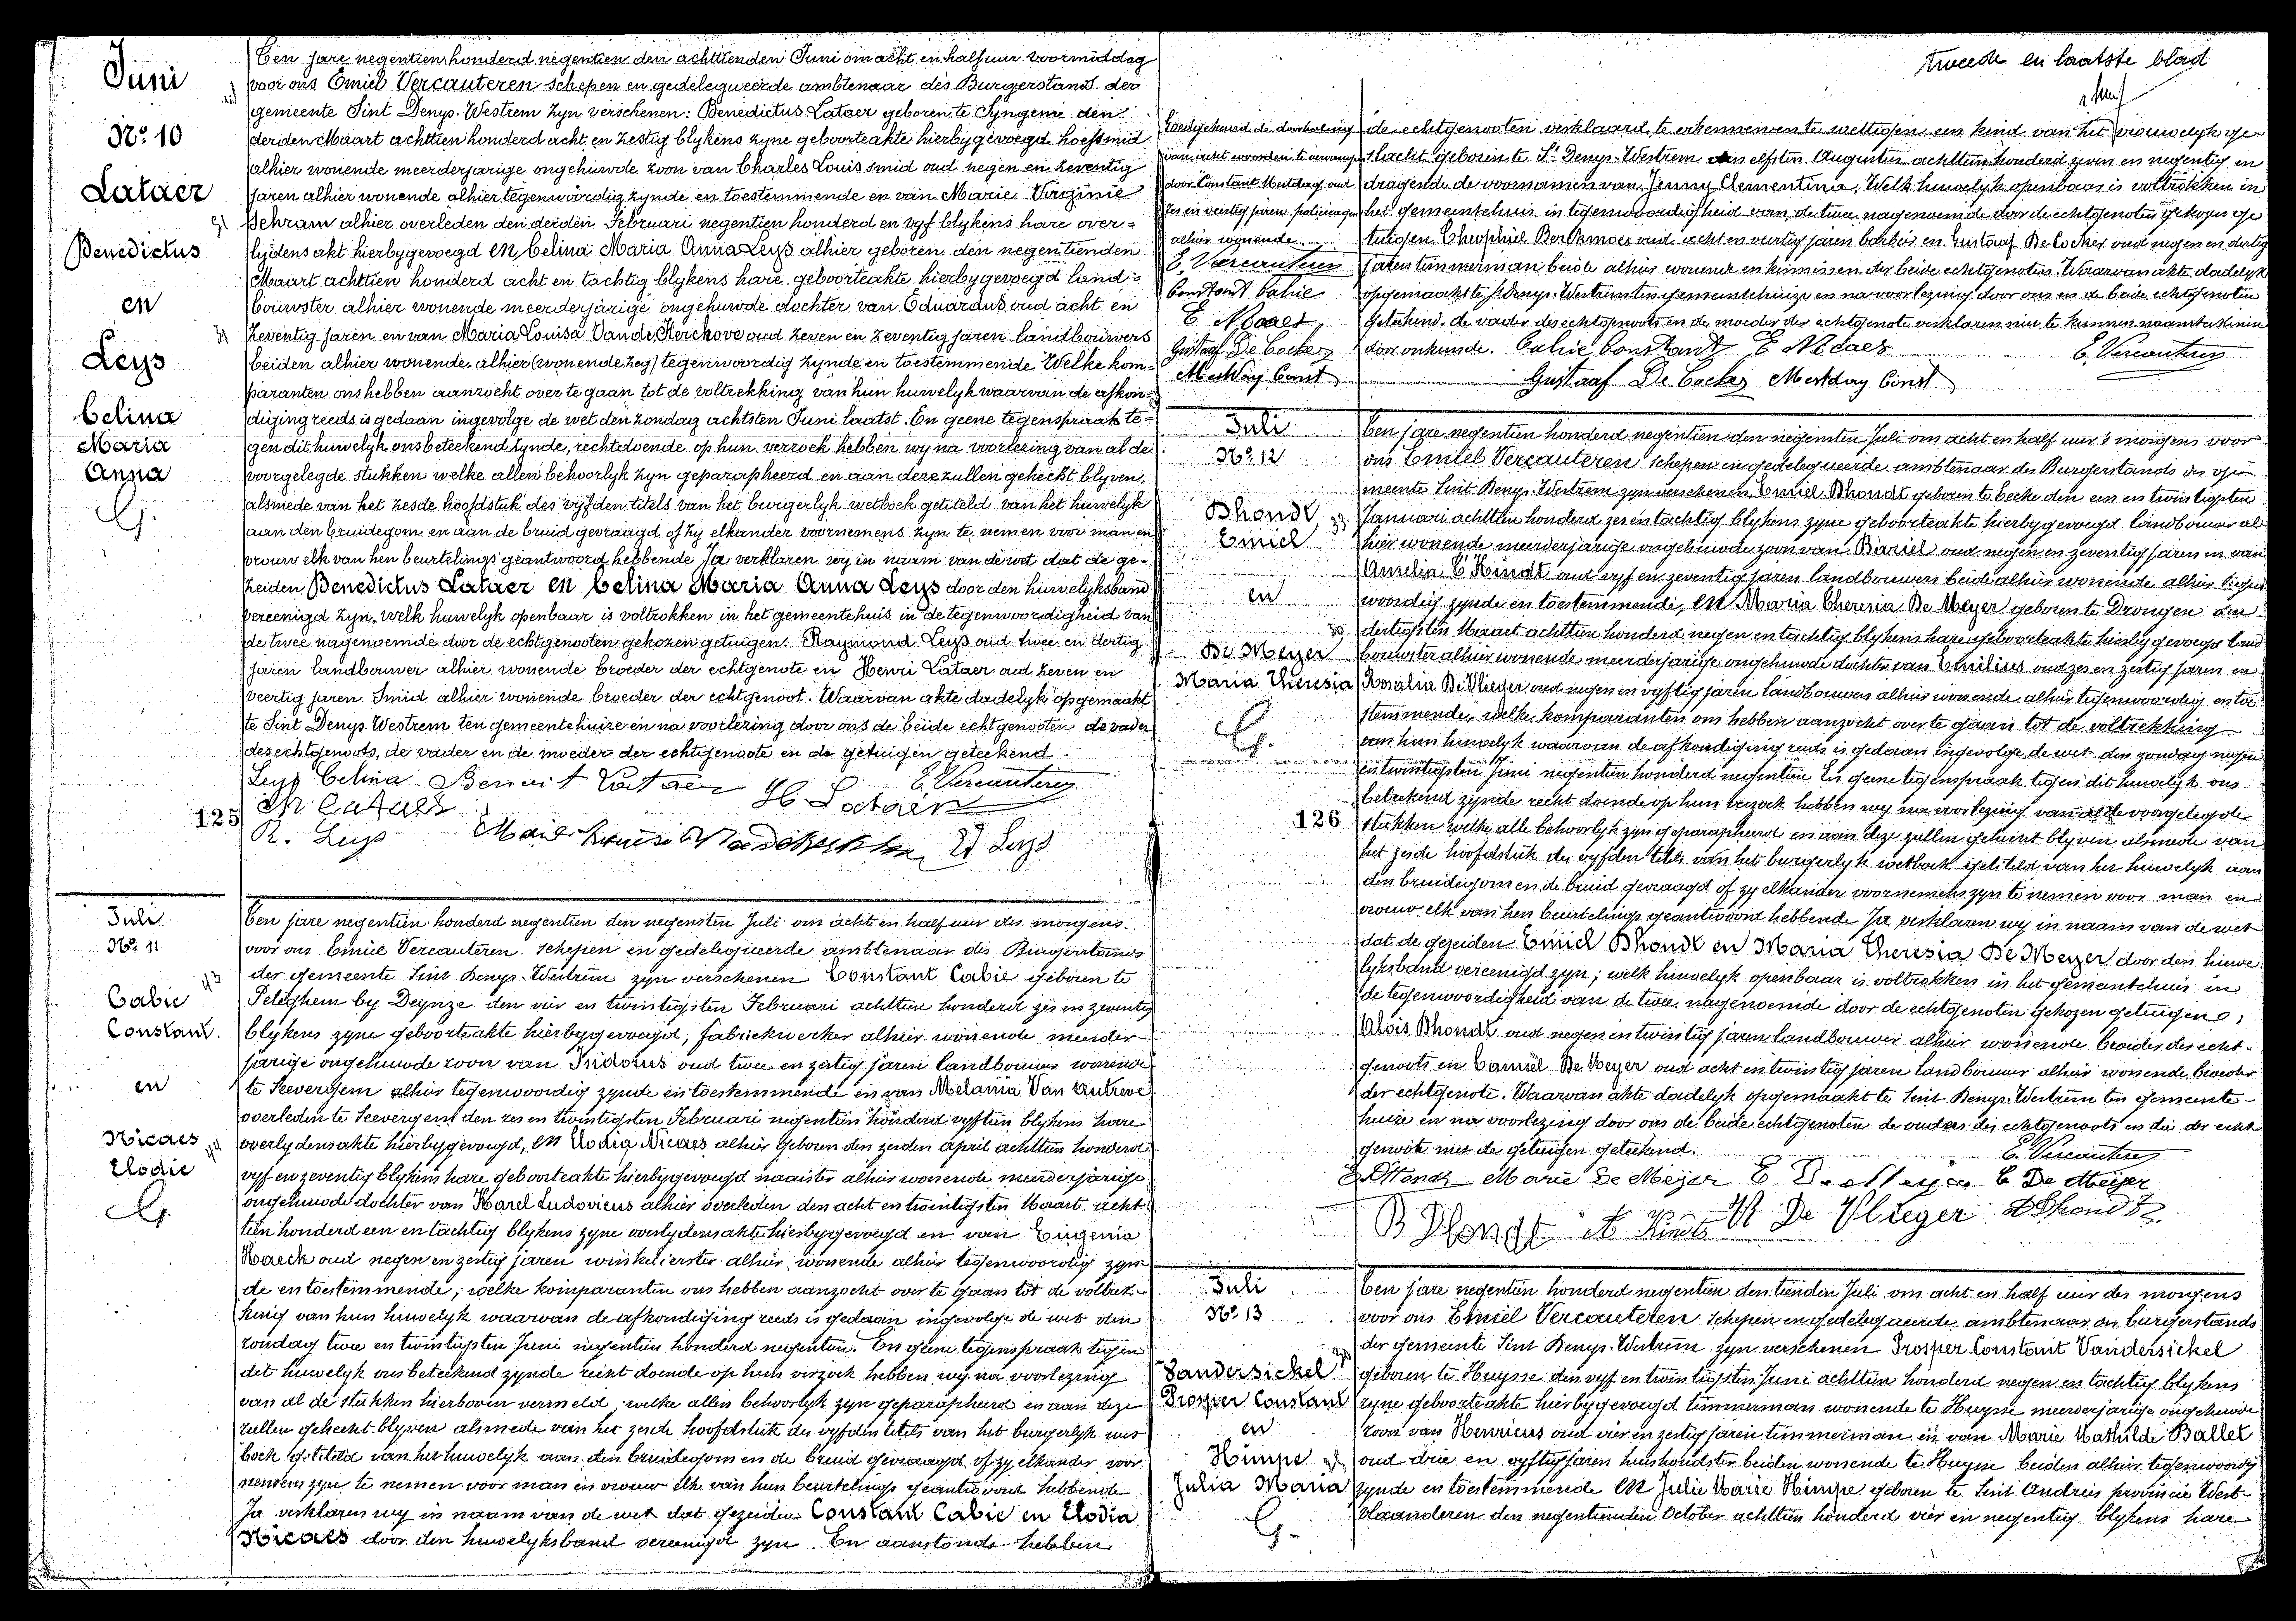 Juni
N° 10
Lataer
Benedictus
en
Leys
Celina
Maria
Anna
G.
Ten jare negentien honderd negentien den achttienden Juni om acht en half uur voormiddag
voor ons Emiel Vercauteren schepen en gedelegueerde ambtenaar des Burgerstands der
gemeente Sint Denys-Westrem zyn verschenen: Benedictus Lataer geboren te Syngem den
derden Maart achttien honderd acht en zestig blykens zyne geboorteakte hierbygevoegd hoefsmid
alhier wonende meerderjarige ongehuwde zoon van Charles Louis smid oud negen en zeventig
jaren alhier wonende alhier tegenwoordig zynde en toestemmende en van Marie Virginie
Schram alhier overleden den derden Februari negentien honderd en vyf blykens hare over-
lydens akt hierbygevoegd en Celina Maria Anna Leys alhier geboren den negentienden
Maart achttien honderd acht en tachtig blykens hare geboorteakte hierbygevoegd land-
bouwster alhier wonende meerderjarige ongehuwde dochter van Eduardus oud acht en
zeventig jaren en van Maria Louisa Vande Kerchove oud zeven en zeventig jaren landbouwers
beiden alhier wonende alhier (wonende zeg) tegenwoordig zynde en toestemmende Welke kom-
paranten ons hebben aanzocht over te gaan tot de voltrekking van hun huwelyk waarvan de afkon-
diging reeds is gedaan ingevolge de wet den zondag achtsten Juni laatst. En geene tegenspraak te-
gen dit huwelyk ons beteekend zynde, rechtdoende op hun verzoek hebben wy na voorlezing van al de
voorgelegde stukken welke allen behoorlyk zyn geparapheerd en aan deze zullen gehecht blyven,
alsmede van het zesde hoofdstuk des vyfden titels van het burgerlyk wetboek getiteld van het huwelyk
aan den bruidegom en aan de bruid gevraagd of zy elkander voornemens zyn te nemen voor man en
vrouw elk van hen beurtelings geantwoord hebbende Ja verklaren wy in naam van de wet dat de ge-
zeiden Benedictus Lataer en Celina Maria Anna Leys door den huwelyksband
vereenigd zyn, welk huwelyk openbaar is voltrokken in het gemeentehuis in de tegenwoordigheid van
de twee nagenoemde door de echtgenooten gekozen getuigen: Raymond Leys oud twee en dertig
jaren landbouwer alhier wonende broeder der echtgenote en Henri Lataer oud zeven en
veertig jaren Smid alhier wonende broeder der echtgenoot. Waarvan akte dadelyk opgemaakt
te Sint Denys Westrem ten gemeentehuize en na voorlezing door ons de beide echtgenooten de vader
des echtgenoots, de vader en de moeder der echtgenoote en de getuigen geteekend.
Leys Celina Benoit Lataer H. Lataer E. Vercauteren
Ch Lataer
R. Leys Marie Louise Ed Leys
125
Juli
N° 11
Cabie
Constant.
en
Nicaes
Elodie
G.
Ten jare negentien honderd negentien den negensten Juli om acht en half uur des morgens
voor ons Emiel Vercauteren schepen en gedelegueerde ambtenaar des Burgerstands
der gemeente Sint Denys-Westrem zyn verschenen Constant Cabie geboren te
Peteghem by Deynze den vier en twintigsten Februari achttien honderd zes en zeventig
blykens zyne geboorteakte hierbygevoegd, fabriekwerker alhier wonende meerder-
jarige ongehuwde zoon van Isidorus oud twee en zestig jaren landbouwer wonende
te Seevergem alhier tegenwoordig zynde en toestemmende en van Melania Van Autreve
overleden te Seevergem den zes en twintigsten Februari negentien honderd vyftien blykens hare
overlydensakte hierbygevoegd, en Elodia Nicaes alhier geboren den zesden April achttien honderd
vyf en zeventig blykens hare geboorteakte hierbygevoegd naaister alhier wonende meerderjarige
ongehuwde dochter van Karel Ludovicus alhier overleden den acht en twintigsten Maart acht-
tien honderd een en tachtig blykens zyne overlydensakte hierbygevoegd en van Eugenia
Haeck oud negen en zestig jaren winkelierster alhier wonende alhier tegenwoordig zyn-
de en toestemmende; welke komparanten ons hebben aanzocht over te gaan tot de voltrek-
king van hun huwelyk waarvan de afkondiging reeds is gedaan ingevolge de wet den
zondag twee en twintigsten Juni negentien honderd negentien. En geene tegenspraak tegen
dit huwelyk ons beteekend zynde recht doende op hun verzoek hebben wy na voorlezing
van al de stukken hierboven vermeld welke allen behoorlyk zyn geparapheerd en aan deze
zullen gehecht blyven alsmede van het zesde hoofdstuk des vyfden titels van het burgerlyk wet-
boek getiteld van het huwelyk aan den bruidegom en de bruid gevraagd of zy elkander voor-
nemens zyn te nemen voor man en vrouw elk van hun beurtelings geantwoord hebbende
Ja verklaren wy in naam van de wet dat gezeiden Constant Cabie en Elodia
Nicaes door den huwelyksband vereenigd zyn. En aanstonds hebben
tweede en laatste blad
Goedgekeurd de doorhaling
van acht woorden te vervangen
door Constant Mestdag oud
zes en veertig jaren
alhier wonende
E. Vercauteren
Constant Cabie
E Nicaes
Gustaaf De Cocker
Mestdag Const
de echtgenooten verklaard te erkennen en te wettigen een kind van het vrouwelyk ge-
slacht geboren te St Denys-Westrem den elfsten Augustus achttien honderd zeven en negentig en
dragende de voornamen van Jenny Clementina. Welk huwelyk openbaar is voltrokken in
het gemeentehuis in tegenwoordigheid van de twee nagenoemde door de echtgenoten gekozen ge-
tuigen Theophiel Berckmoes oud acht en veertig jaren barbier en Gustaaf De Cocker oud negen en dertig
jaren timmerman beide alhier wonende en kennissen der beide echtgenoten. Waarvan akte dadelyk
opgemaakt te St Denys-Westrem ten gemeentehuize en na voorlezing door ons en de beide echtgenoten
geteekend. de vader des echtgenoots en de moeder der echtgenote verklaren niet te kunnen naamteekenen
door onkunde. Cabie Constant E Nicaes E. Vercauteren
Gustaaf De Cocker Mestdag Const
Juli
N° 12
Dhondt
Emiel
en
De Meyer
Maria Theresia
G.
Ten jare negentien honderd negentien den negensten Juli om acht en half uur 's morgens voor
ons Emiel Vercauteren schepen en gedelegueerde ambtenaar des Burgerstands der ge-
meente Sint Denys-Westrem zyn verschenen Emiel Dhondt geboren te Lecke den een en twintigsten
Januari achttien honderd zes en tachtig blykens zyne geboorteakte hierbygevoegd landbouwer al-
hier wonende meerderjarige ongehuwde zoon van Barsiel oud negen en zeventig jaren en van
Amelia T'Kindt oud vyf en zeventig jaren landbouwers beide alhier wonende alhier tegen-
woordig zynde en toestemmende, en Maria Theresia De Meyer geboren te Drongen den
dertigsten Maart achttien honderd negen en tachtig blykens hare geboorteakte hierbygevoegd land-
bouwster alhier wonende meerderjarige ongehuwde dochter van Emilius oud zes en zestig jaren en
Rosalia De Vlieger oud negen en vyftig jaren landbouwers alhier wonende alhier tegenwoordig en toe-
stemmende, welke komparanten ons hebben aanzocht over te gaan tot de voltrekking
van hun huwelyk waarvan de afkondiging reeds is gedaan ingevolge de wet den zondag negen
en twintigsten Juni negentien honderd negentien En geene tegenspraak tegen dit huwelyk ons
beteekend zynde recht doende op hun verzoek hebben wy na voorlezing van al de voorgelegde
stukken welke alle behoorlyk zyn geparapheerd en aan deze zullen gehecht blyven alsmede van
het zesde hoofdstuk des vyfden titels van het burgerlyk wetboek getiteld van het huwelyk aan
den bruidegom en de bruid gevraagd of zy elkander voornemens zyn te nemen voor man en
vrouw elk van hen beurtelings geantwoord hebbende Ja verklaren wy in naam van de wet
dat de gezeiden Emiel Dhondt en Maria Theresia De Meyer door den huwe-
lyksband vereenigd zyn; welk huwelyk openbaar is voltrokken in het gemeentehuis in
de tegenwoordigheid van de twee nagenoemde door de echtgenoten gekozen getuigen:
Alois Dhondt oud negen en twintig jaren landbouwer alhier wonende broeder des echt-
genoots en Camiel De Meyer oud acht en twintig jaren landbouwer alhier wonende broeder
der echtgenote. Waarvan akte dadelyk opgemaakt te Sint Denys-Westrem ten gemeente-
huize en na voorlezing door ons de beide echtgenoten de ouders des echtgenoots en die der echt-
genote met de getuigen geteekend. E. Vercauteren
E Dhondt Marie De Meyer E De Meyer C De Meyer
B Dhondt A Kindt R De Vlieger A Dhondt
126
Juli
N° 13
Vandersickel
Prosper Constant
en
Himpe
Julia Maria
G-
Ten jare negentien honderd negentien den tienden Juli om acht en half uur des morgens
voor ons Emiel Vercauteren schepen en gedelegueerde ambtenaar des burgerstands
der gemeente Sint Denys-Westrem zyn verschenen Prosper Constant Vandersickel
geboren te Huysse den vyf en twintigsten Juni achttien honderd negen en tachtig blykens
zyne geboorteakte hierbygevoegd timmerman wonende te Huysse meerderjarige ongehuwde
zoon van Henricus oud vier en zestig jaren timmerman en van Marie Mathilde Ballet
oud drie en vyftig jaren huishoudster beiden wonende te Huysse beiden alhier tegenwoordig
zynde en toestemmende en Julie Marie Himpe geboren te Sint Andries provincie West-
Vlaanderen den negentienden October achttien honderd vier en negentig blykens hare